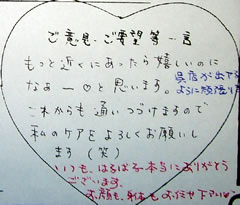 ご意見・ご要望等一言
もっと近くにあったら嬉しいのに
なぁー♡と思います。
これからも通いつづけますので
私のケアをよろしくお願いし
ます(笑)
呉店が出せる
ように頑張り
いつも、はるばる本当にありがとう
ございます。
お顔も、身体もお任せ下さい♡